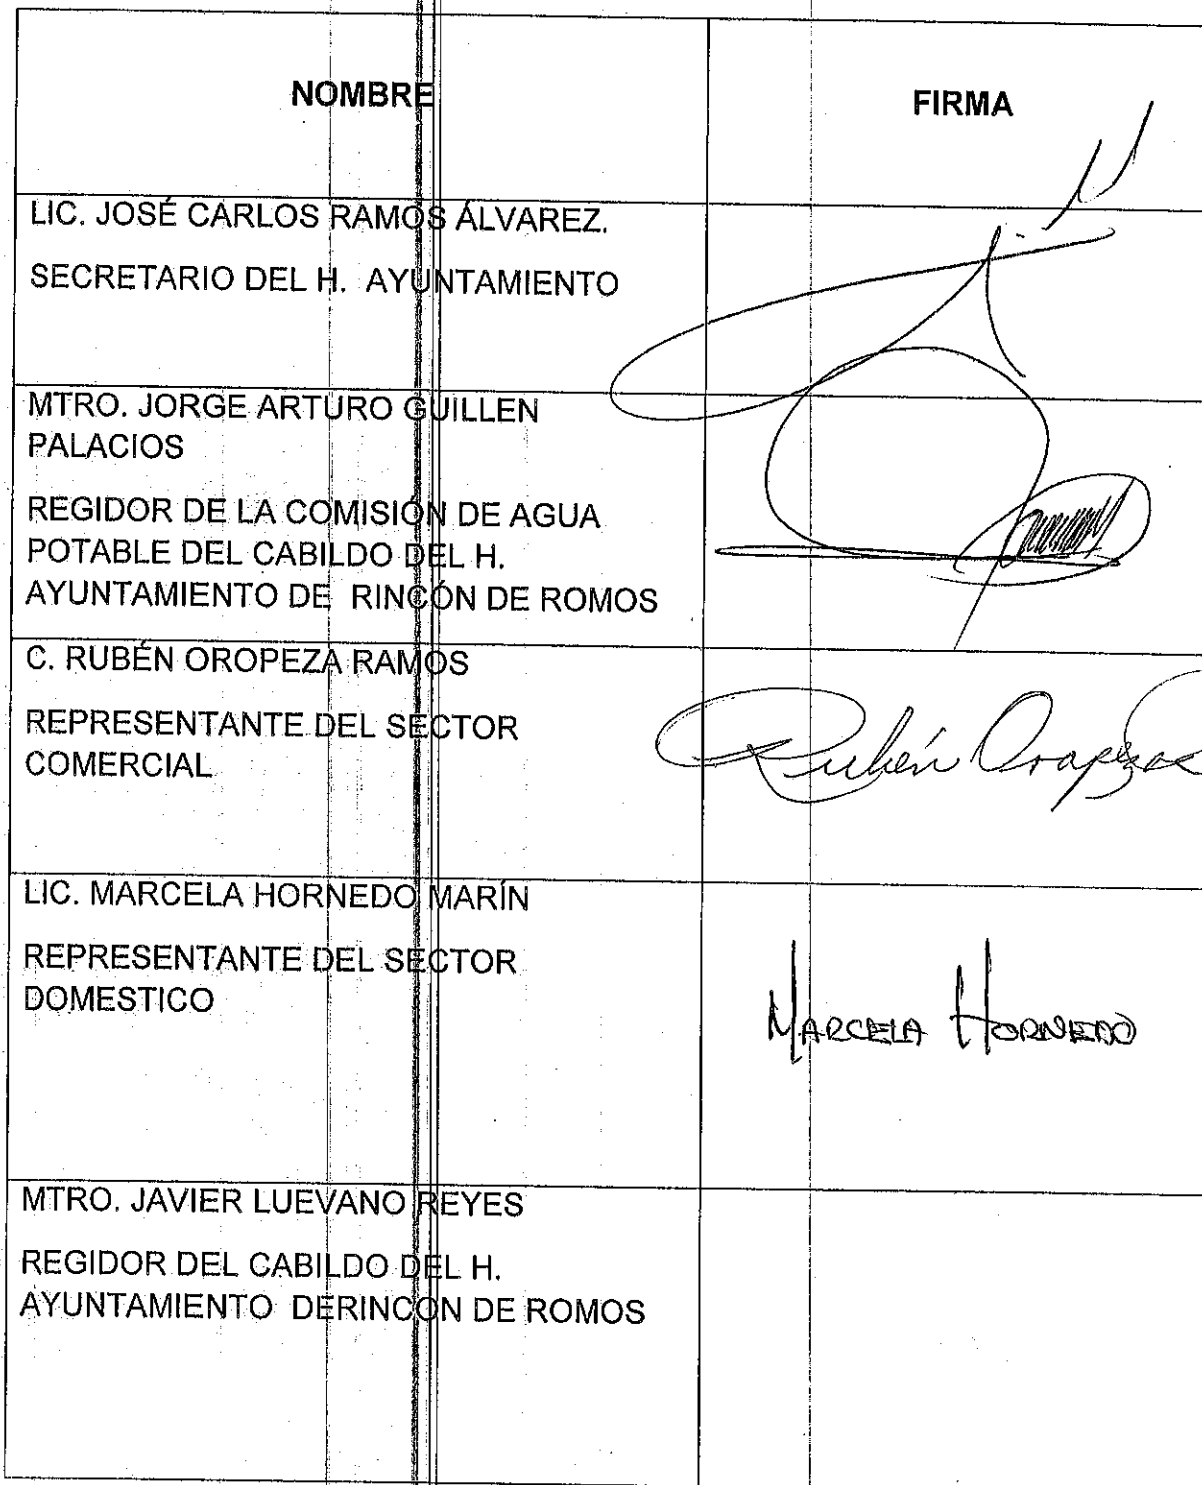 NOMBRE
FIRMA
LIC. JOSÉ CARLOS RAMOS ÁLVAREZ.
SECRETARIO DEL H. AYUNTAMIENTO
MTRO. JORGE ARTURO GUILLEN
PALACIOS
REGIDOR DE LA COMISIÓN DE AGUA
POTABLE DEL CABILDO DEL H.
AYUNTAMIENTO DE RINCÓN DE ROMOS
C. RUBÉN OROPEZA RAMOS
REPRESENTANTE DEL SECTOR
COMERCIAL
Rubén Oropeza
LIC. MARCELA HORNEDO MARÍN
REPRESENTANTE DEL SECTOR
DOMESTICO
MARCELA HORNEDO
MTRO. JAVIER LUEVANO REYES
REGIDOR DEL CABILDO DEL H.
AYUNTAMIENTO DERINCON DE ROMOS